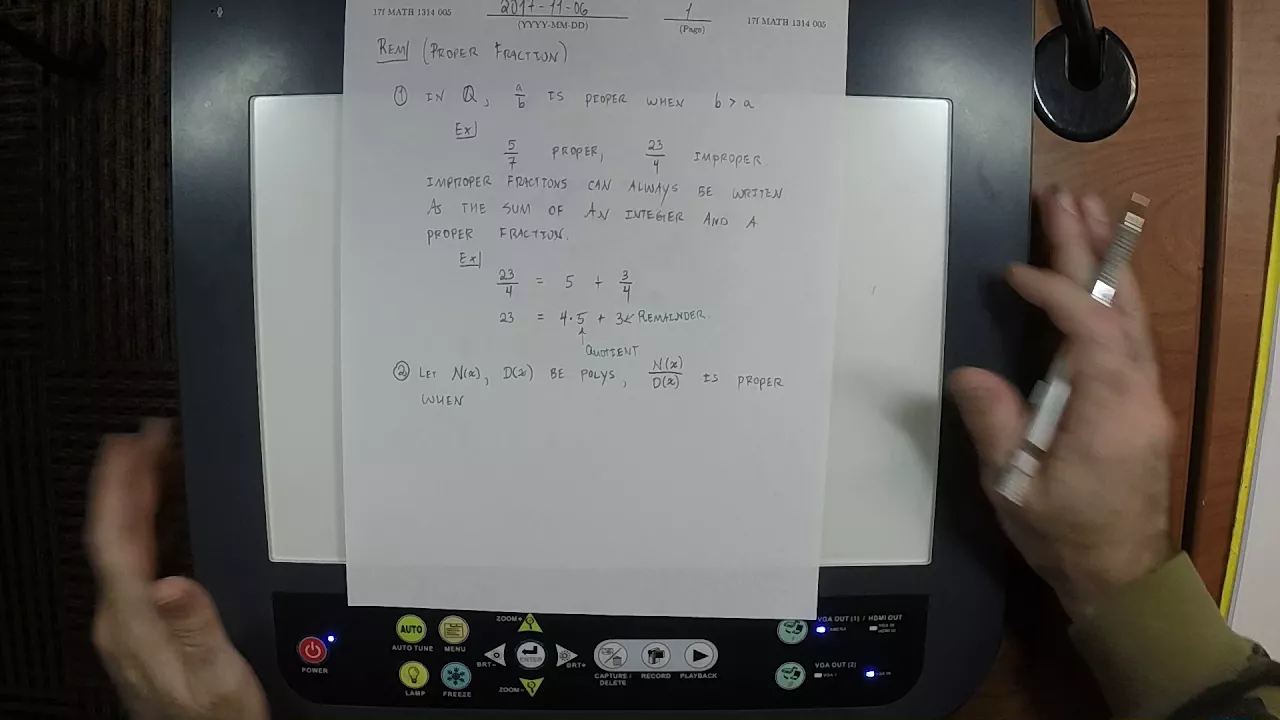 17f MATH 1314 005
2017-11-06
(YYYY-MM-DD)
1
(Page)
17f MATH 1314 005
REM (PROPER FRACTION)
① IN ℚ, a/b IS PROPER WHEN b > a
EX
5/7 PROPER, 23/4 IMPROPER.
IMPROPER FRACTIONS CAN ALWAYS BE WRITTEN
AS THE SUM OF AN INTEGER AND A
PROPER FRACTION.
EX
23/4 = 5 + 3/4
23 = 4·5 + 3 ← REMAINDER.
↑
QUOTIENT
② LET N(x), D(x) BE POLYS, N(x)/D(x) IS PROPER
WHEN
POWER
AUTO
AUTO TUNE
MENU
LAMP
FREEZE
ZOOM+
BRT-
ENTER
BRT+
ZOOM-
CAPTURE / DELETE
RECORD
PLAYBACK
VGA OUT (1) / HDMI OUT
VGA OUT (2)